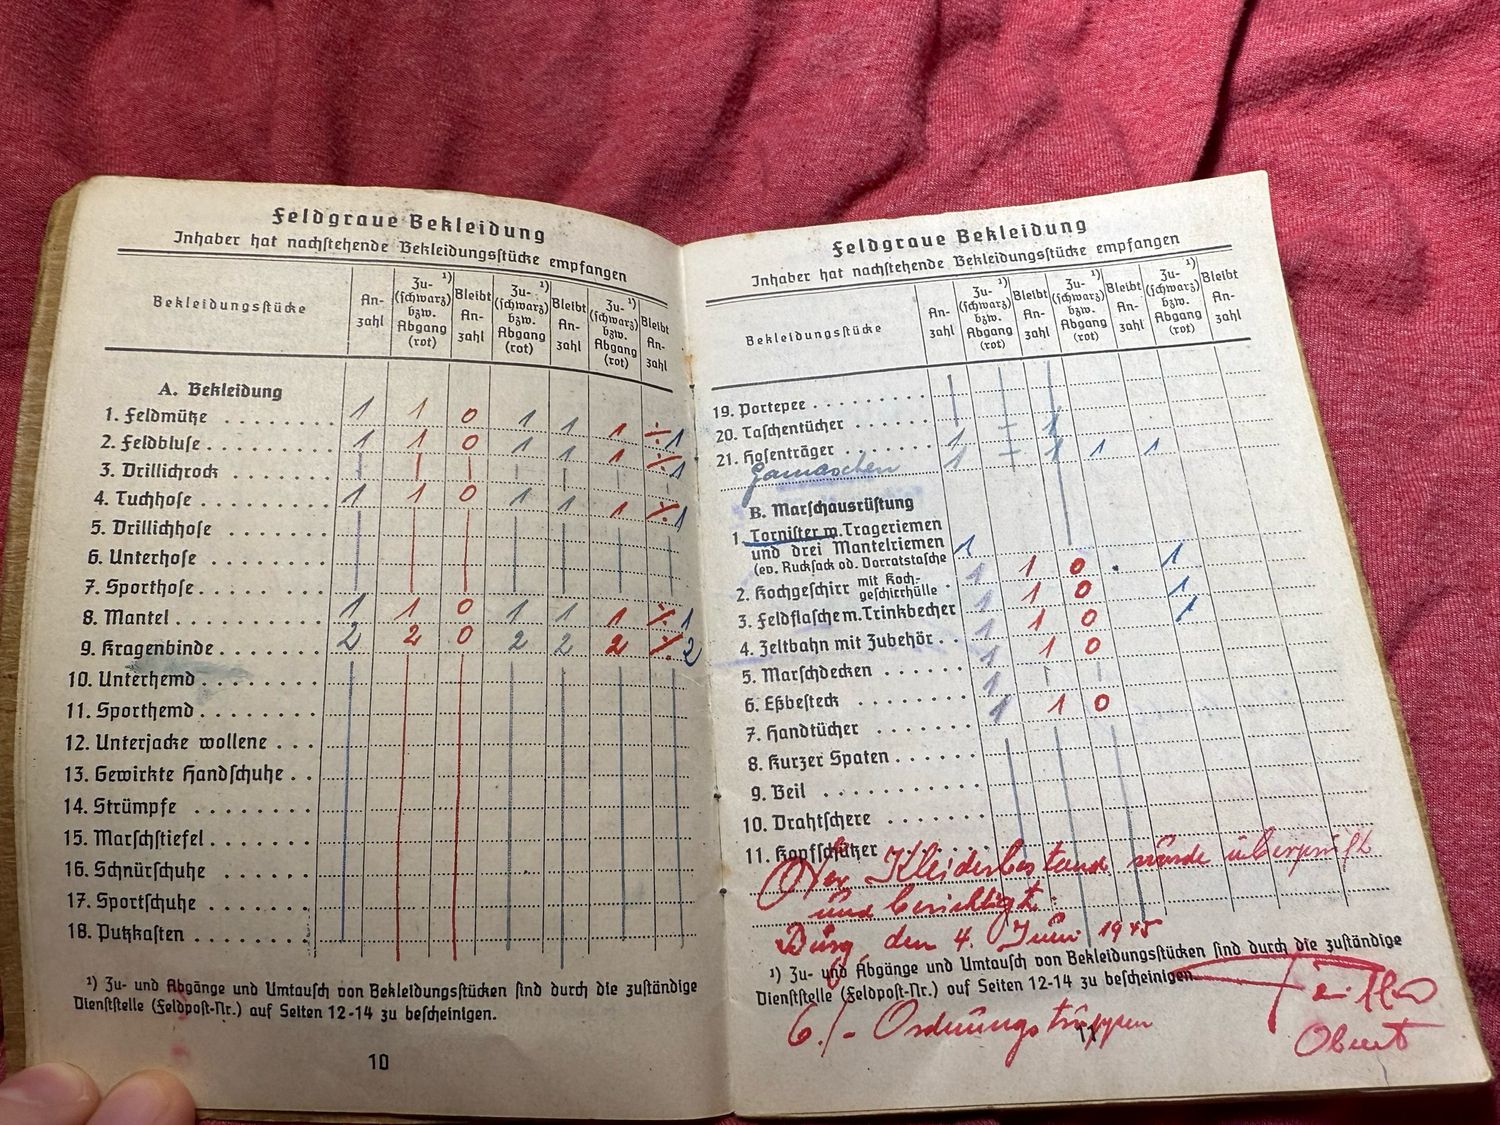 Feldgraue Bekleidung
Inhaber hat nachstehende Bekleidungsstücke empfangen
Bekleidungsstücke An-zahl Zu- ¹) (schwarz) bzw. Abgang (rot) Bleibt An-zahl Zu- ¹) (schwarz) bzw. Abgang (rot) Bleibt An-zahl Zu- ¹) (schwarz) bzw. Abgang (rot) Bleibt An-zahl
A. Bekleidung
1. Feldmütze 1 1 0 1 1 1 ÷ 1
2. Feldbluse 1 1 0 1 1 1 ÷ 1
3. Drillichrock
4. Tuchhose 1 1 0 1 1 1 ÷ 1
5. Drillichhose
6. Unterhose
7. Sporthose
8. Mantel 1 1 0 1 1 1 ÷ 1
9. Kragenbinde 2 2 0 2 2 2 ÷ 2
10. Unterhemd
11. Sporthemd
12. Unterjacke wollene
13. Gewirkte Handschuhe
14. Strümpfe
15. Marschstiefel
16. Schnürschuhe
17. Sportschuhe
18. Putzkasten
¹) Zu- und Abgänge und Umtausch von Bekleidungsstücken sind durch die zuständige
Dienststelle (Feldpost-Nr.) auf Seiten 12-14 zu bescheinigen.
10
Feldgraue Bekleidung
Inhaber hat nachstehende Bekleidungsstücke empfangen
Bekleidungsstücke An-zahl Zu- ¹) (schwarz) bzw. Abgang (rot) Bleibt An-zahl Zu- ¹) (schwarz) bzw. Abgang (rot) Bleibt An-zahl Zu- ¹) (schwarz) bzw. Abgang (rot) Bleibt An-zahl
19. Portepee
20. Taschentücher
21. Hosenträger 1 1
Gamaschen 1 1 1 1
B. Marschausrüstung
1. Tornister m. Trageriemen
und drei Mantelriemen
(ev. Rucksack od. Vorratstasche 1
2. Kochgeschirr mit Koch-geschirrhülle 1 1 0 1
3. Feldflasche m. Trinkbecher 1 1 0 1
4. Zeltbahn mit Zubehör 1 1 0 1
5. Marschdecken 1 1 0
6. Eßbesteck 1
7. Handtücher 1 1 0
8. Kurzer Spaten
9. Beil
10. Drahtschere
11. Kopfschützer
Der Kleiderbestand wurde überprüft
und berichtigt:
den 4. Juni 1945
¹) Zu- und Abgänge und Umtausch von Bekleidungsstücken sind durch die zuständige
Dienststelle (Feldpost-Nr.) auf Seiten 12-14 zu bescheinigen.
6./- Ordnungstruppen
11